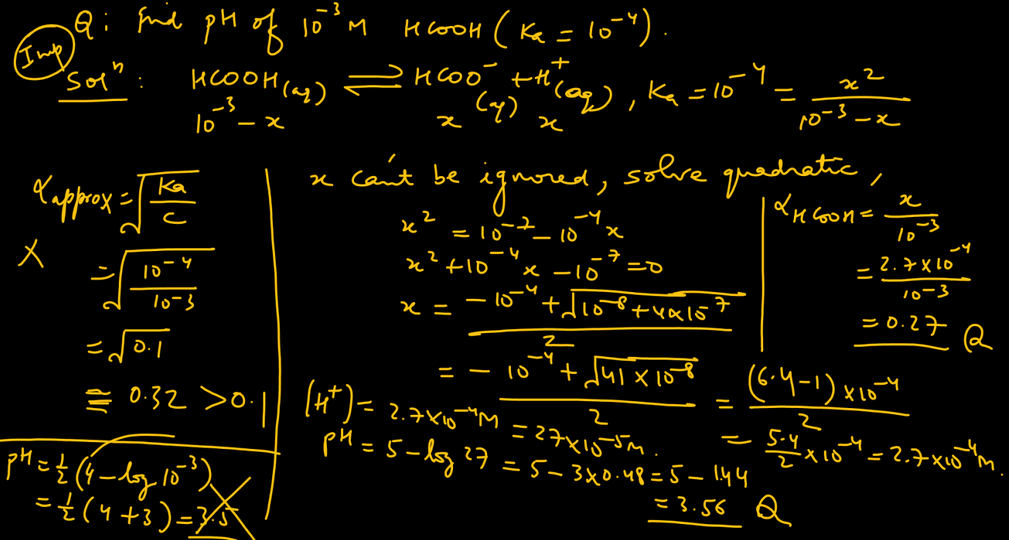 Imp
Q: Find pH of 10⁻³ M HCOOH (Ka = 10⁻⁴).
Solⁿ: HCOOH(aq) ⇌ HCOO⁻(aq) + H⁺(aq), Ka = 10⁻⁴ = x² / (10⁻³ - x)
10⁻³ - x x x
αapprox = √(Ka / C)
X
= √(10⁻⁴ / 10⁻³)
= √0.1
≅ 0.32 > 0.1
pH = ½ (4 - log 10⁻³)
= ½ (4 + 3) = 3.5
x can't be ignored, solve quadratic,
x² = 10⁻⁷ - 10⁻⁴x
x² + 10⁻⁴x - 10⁻⁷ = 0
x = (-10⁻⁴ + √(10⁻⁸ + 4×10⁻⁷)) / 2
= (-10⁻⁴ + √(41 × 10⁻⁸)) / 2 = ((6.4 - 1) × 10⁻⁴) / 2
= 5.4/2 × 10⁻⁴ = 2.7 × 10⁻⁴ M.
(H⁺) = 2.7 × 10⁻⁴ M = 27 × 10⁻⁵ M.
pH = 5 - log 27 = 5 - 3 × 0.48 = 5 - 1.44
= 3.56 Q
αHCOOH = x / 10⁻³
= 2.7 × 10⁻⁴ / 10⁻³
= 0.27 Q